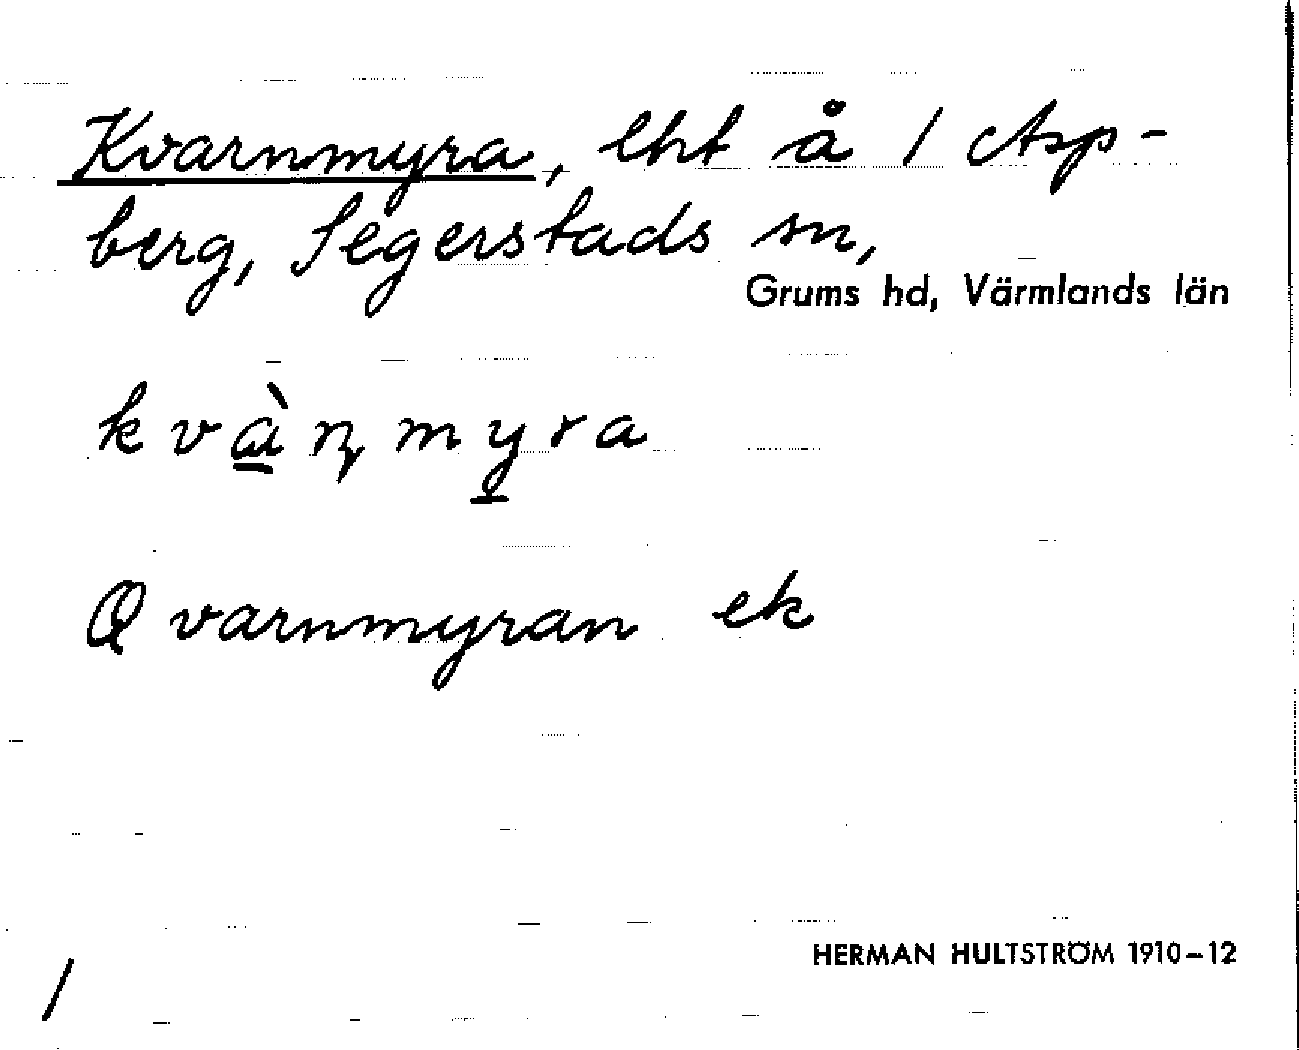 Kvarnmyra, lht å / Asp-
berg, Segerstads sn,
Grums hd, Värmlands län
kvàɳmyra
Qvarnmyran ek
HERMAN HULTSTRÖM 1910-12
/